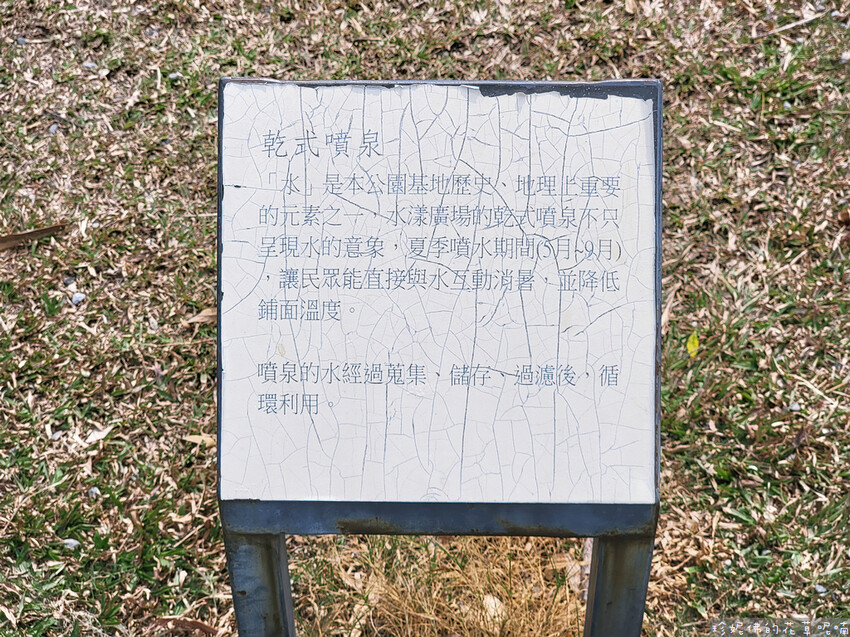 乾式噴泉
「水」是本公園基地歷史、地理上重要
的元素之一，水漾廣場的乾式噴泉不只
呈現水的意象，夏季噴水期間(5月~9月)
，讓民眾能直接與水互動消暑，並降低
鋪面溫度。
噴泉的水經過蒐集、儲存、過濾後，循
環利用。
珍妮佛的花草呢喃